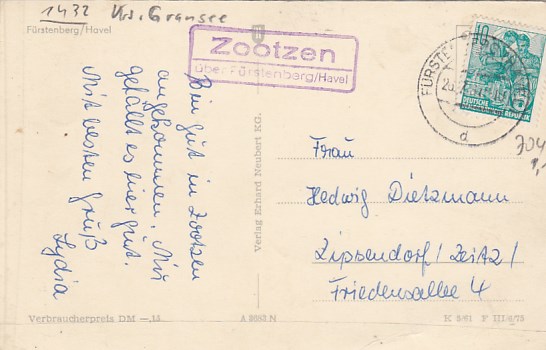 1432 Krs. Gransee
Fürstenberg/Havel
Zootzen
über Fürstenberg/Havel
10
DEUTSCHE
DEMOKRATISCHE REPUBLIK
d
Bin gut in Zootzen
angekommen. Mir
gefällt es hier gut.
Mit besten Gruß
Lydia
Verlag Erhard Neubert KG.
Frau
Hedwig Dietzmann
Zipsendorf/Zeitz/
Friedensallee 4
Verbraucherpreis DM —,15
A 3662 N
K 5/61